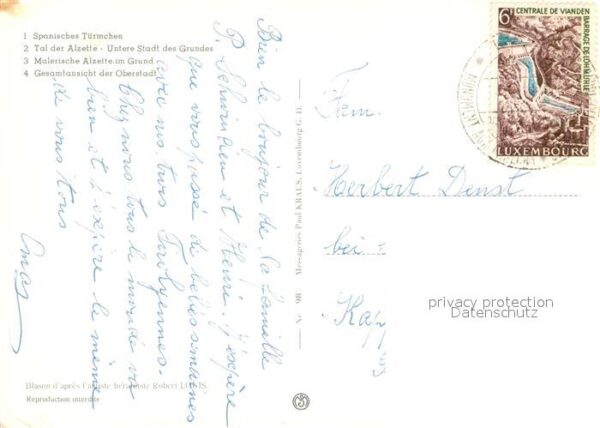 1 Spanisches Türmchen
2 Tal der Alzette - Untere Stadt des Grundes
3 Malerische Alzette im Grund
4 Gesamtansicht der Oberstadt
Bien le bonjour de la famille
P. Schwinden et Henri. J'espère
que vous passé de belles semaines
avec nos trois
Chez nous tous le monde va
bien et j'espère le même
de vous tous
Blason d'après l'artiste héraldiste Robert LOUIS.
Reproduction interdite
98
Messageries Paul KRAUS, Luxembourg G. D.
Fam.
Herbert Denst
bei
Kapp
privacy protection
Datenschutz
6F
CENTRALE DE VIANDEN
BARRAGE DE LOHMÜHLE
LUXEMBOURG